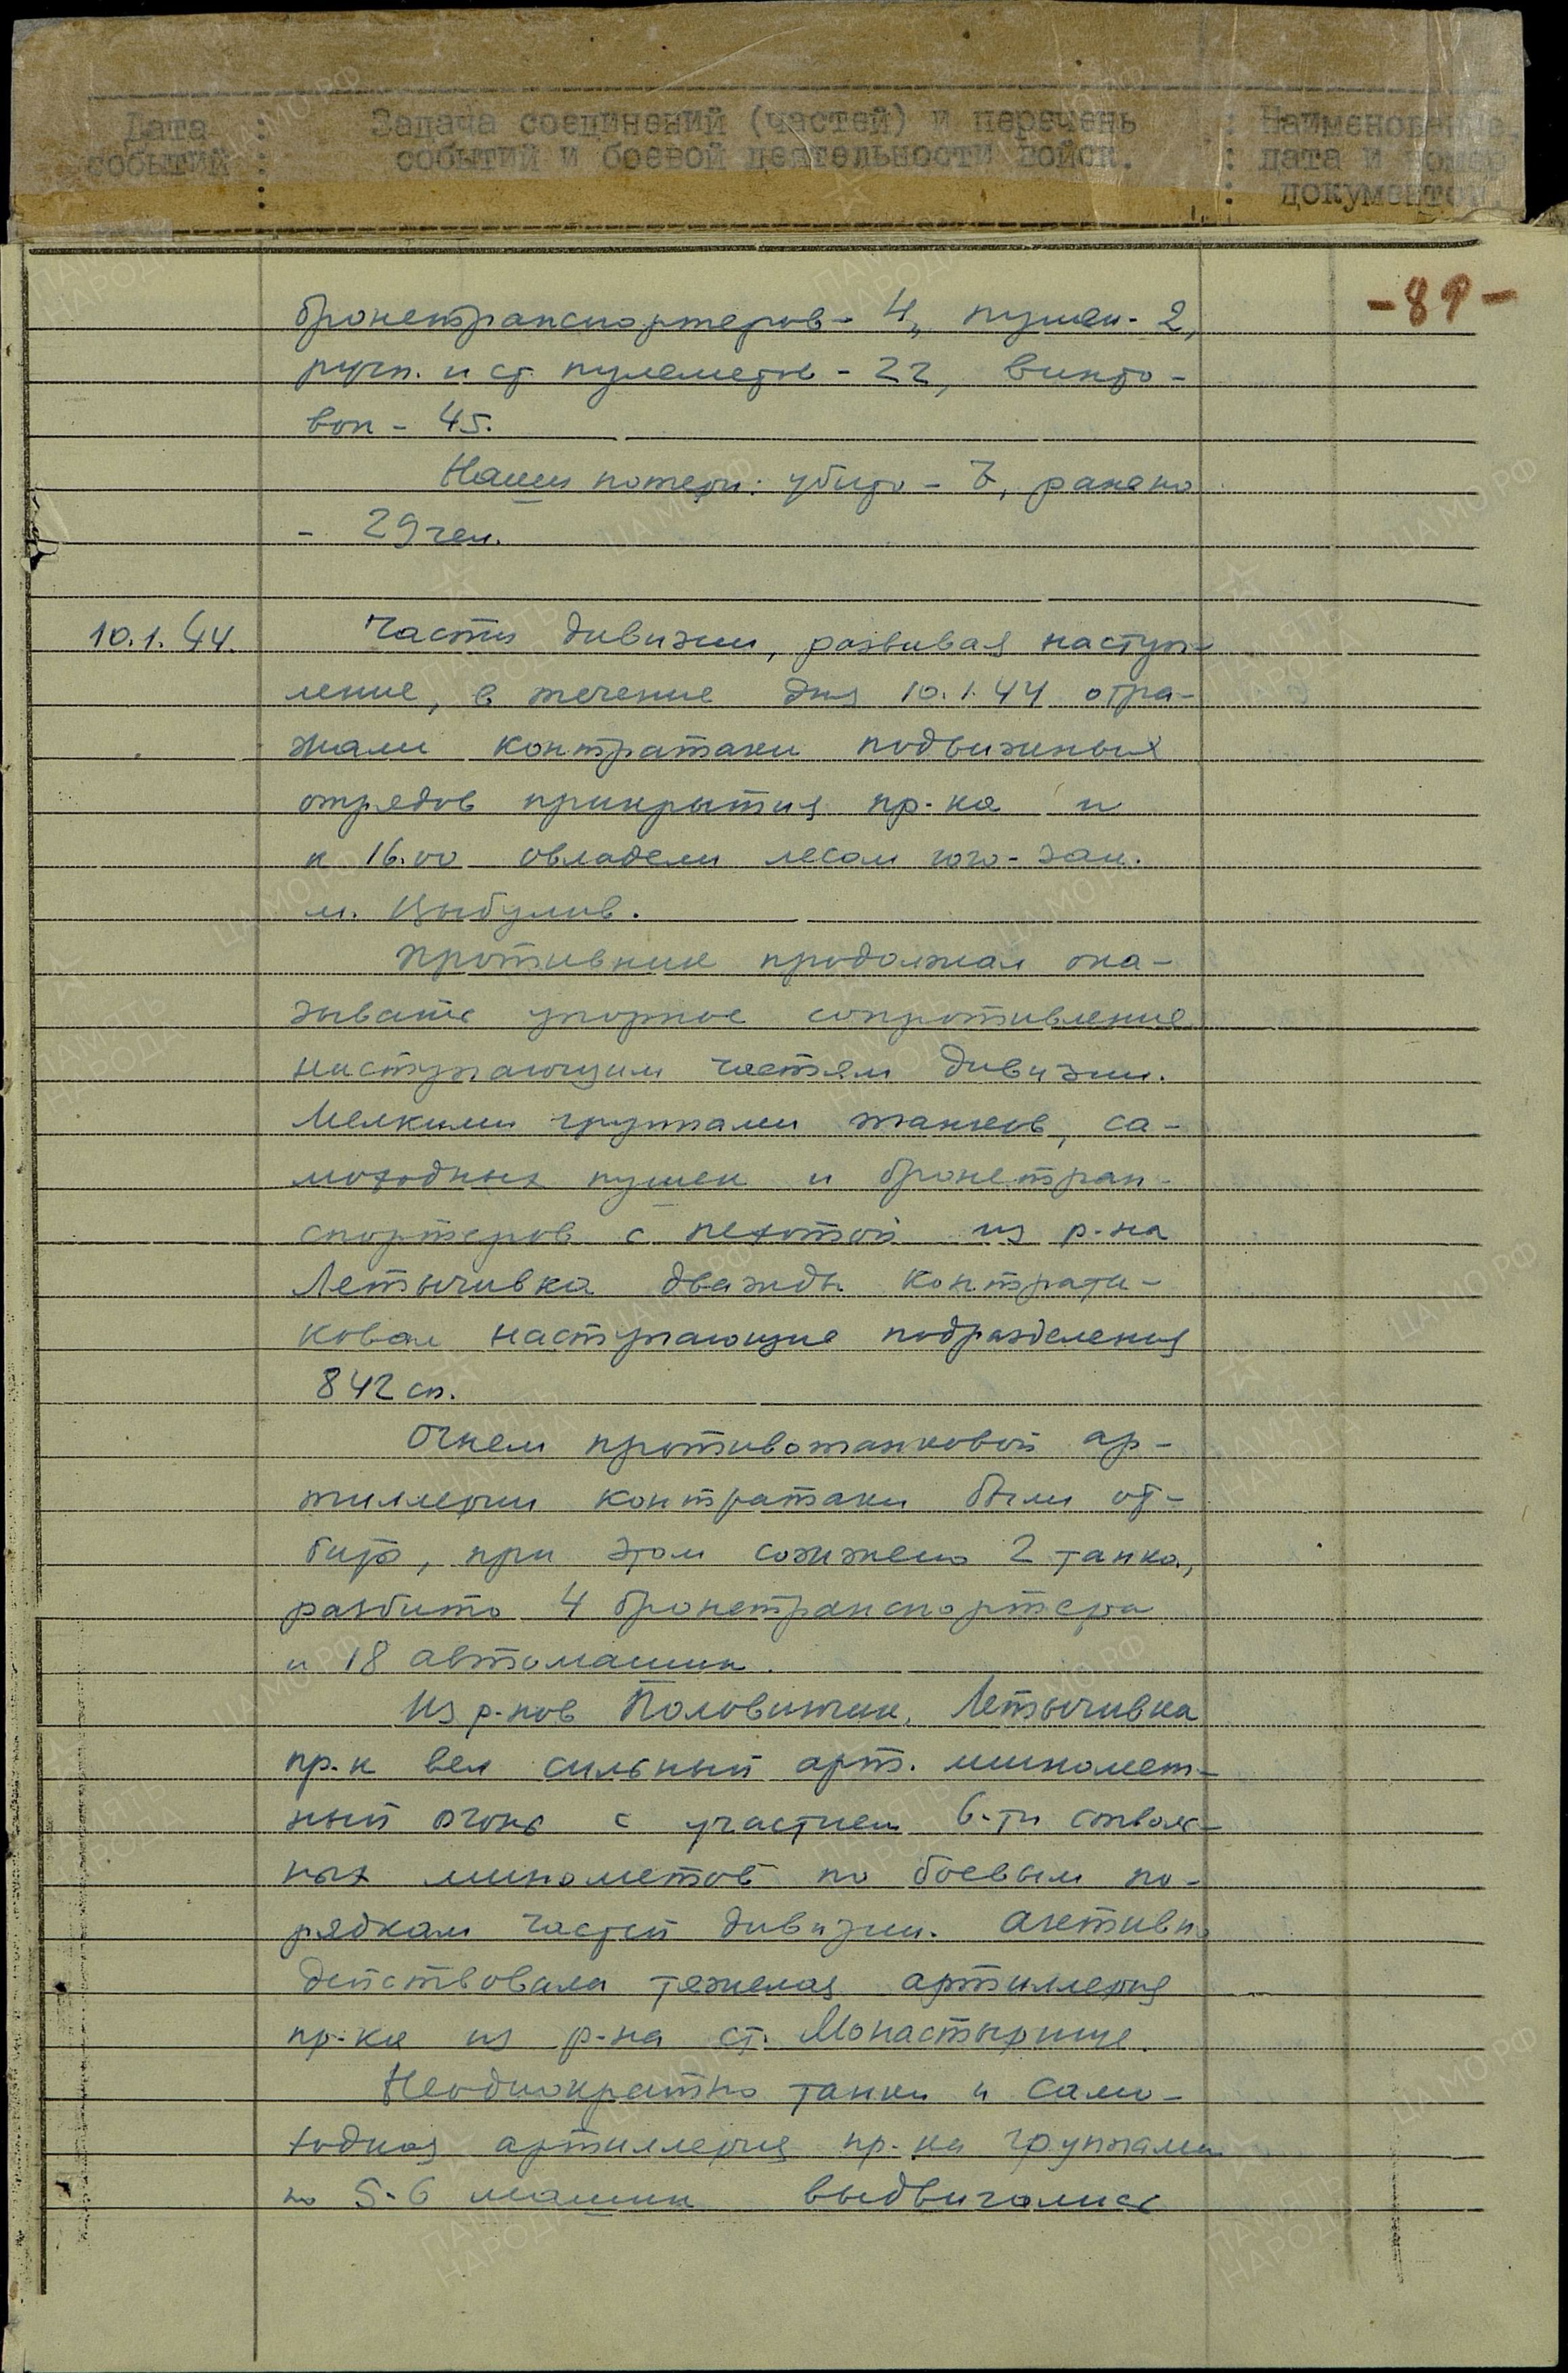 Дата событий
Задача соединений (частей) и перечень
событий и боевой деятельности войск.
Наименование,
дата и номер
документов
-89-
бронетранспортеров - 4, пушек - 2,
ручн. и ст. пулеметов - 22, винто-
вок - 45.
Наши потери: убито - 7, ранено
- 29 чел.
10.1.44. Части дивизии, развивая наступ-
ление, в течение дня 10.1.44 отра-
жали контратаки подвижных
отрядов прикрытия пр-ка и
к 16.00 овладели лесом юго-зап.
м. Цыбулив.
Противник продолжал ока-
зывать упорное сопротивление
наступающим частям дивизии.
Мелкими группами танков, са-
моходных пушек и бронетран-
спортеров с пехотой из р-на
Летычивка дважды контрата-
ковал наступающие подразделения
842 сп.
Огнем противотанковой ар-
тиллерии контратаки были от-
биты, при этом сожжено 2 танка,
разбито 4 бронетранспортера
и 18 автомашин.
Из р-нов Половинчик, Летычивка
пр-к вел сильный арт. миномет-
ный огонь с участием 6-ти стволь-
ных минометов по боевым по-
рядкам частей дивизии. Активно
действовала тяжелая артиллерия
пр-ка из р-на ст. Монастырище.
Неоднократно танки и само-
ходная артиллерия пр-ка группами
по 5-6 машин выдвигались